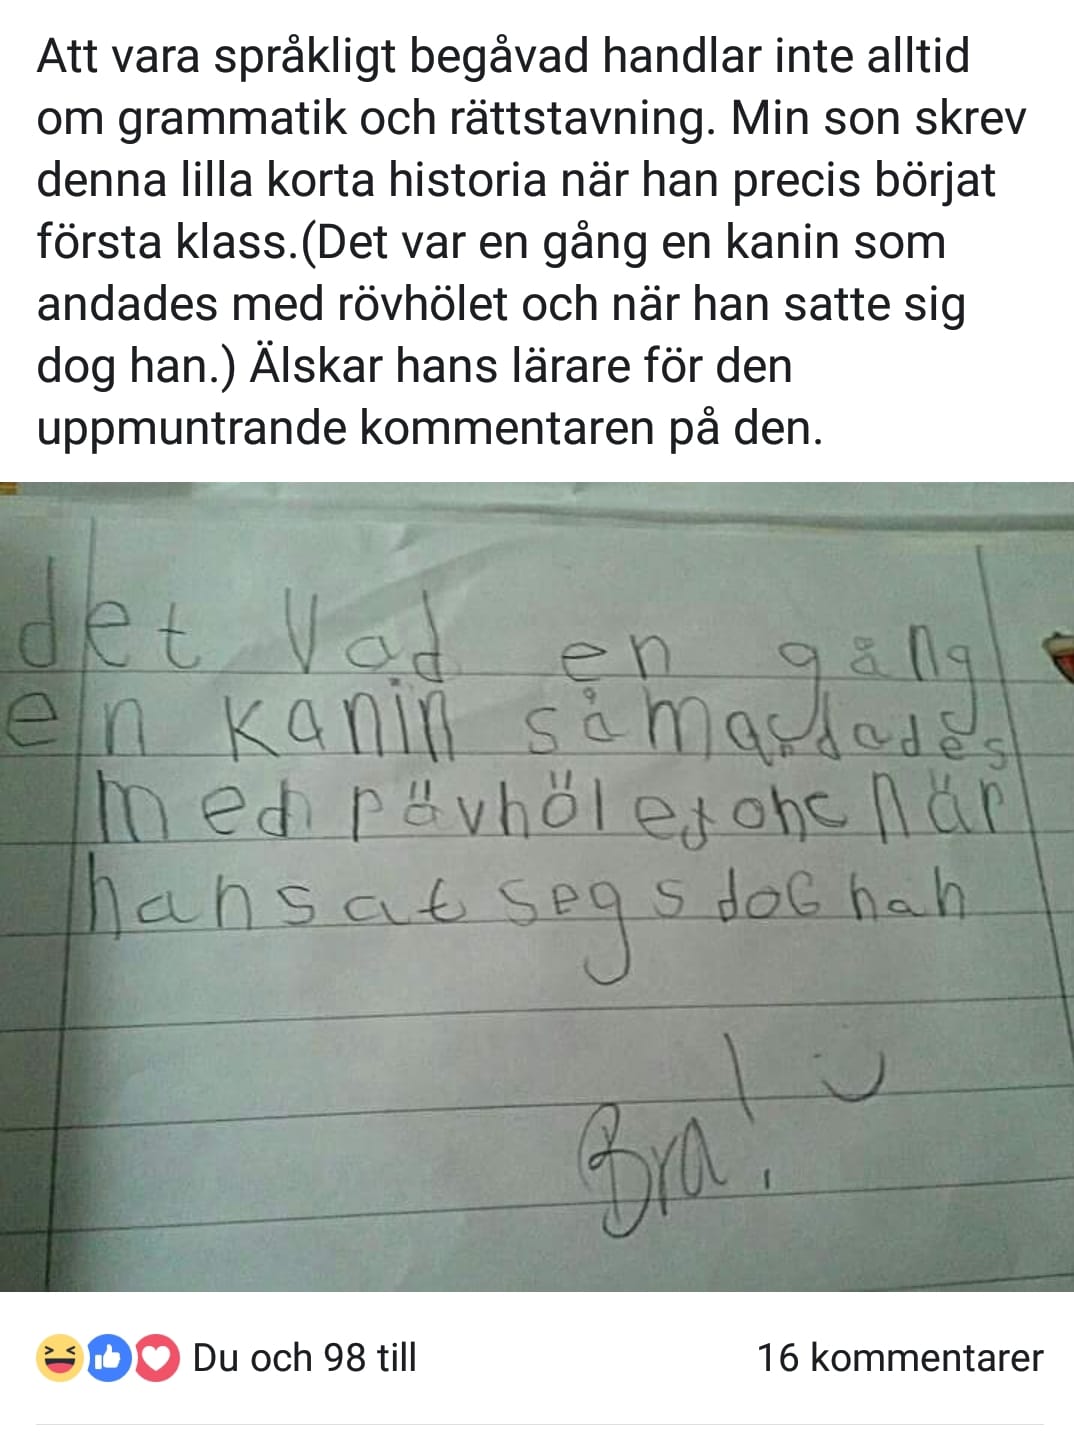 Att vara språkligt begåvad handlar inte alltid
om grammatik och rättstavning. Min son skrev
denna lilla korta historia när han precis börjat
första klass.(Det var en gång en kanin som
andades med rövhölet och när han satte sig
dog han.) Älskar hans lärare för den
uppmuntrande kommentaren på den.
det Vad en gång
en kanin såmandades
med rövhölet ohc när
han sat segs doG han
Bra! :)
Du och 98 till
16 kommentarer